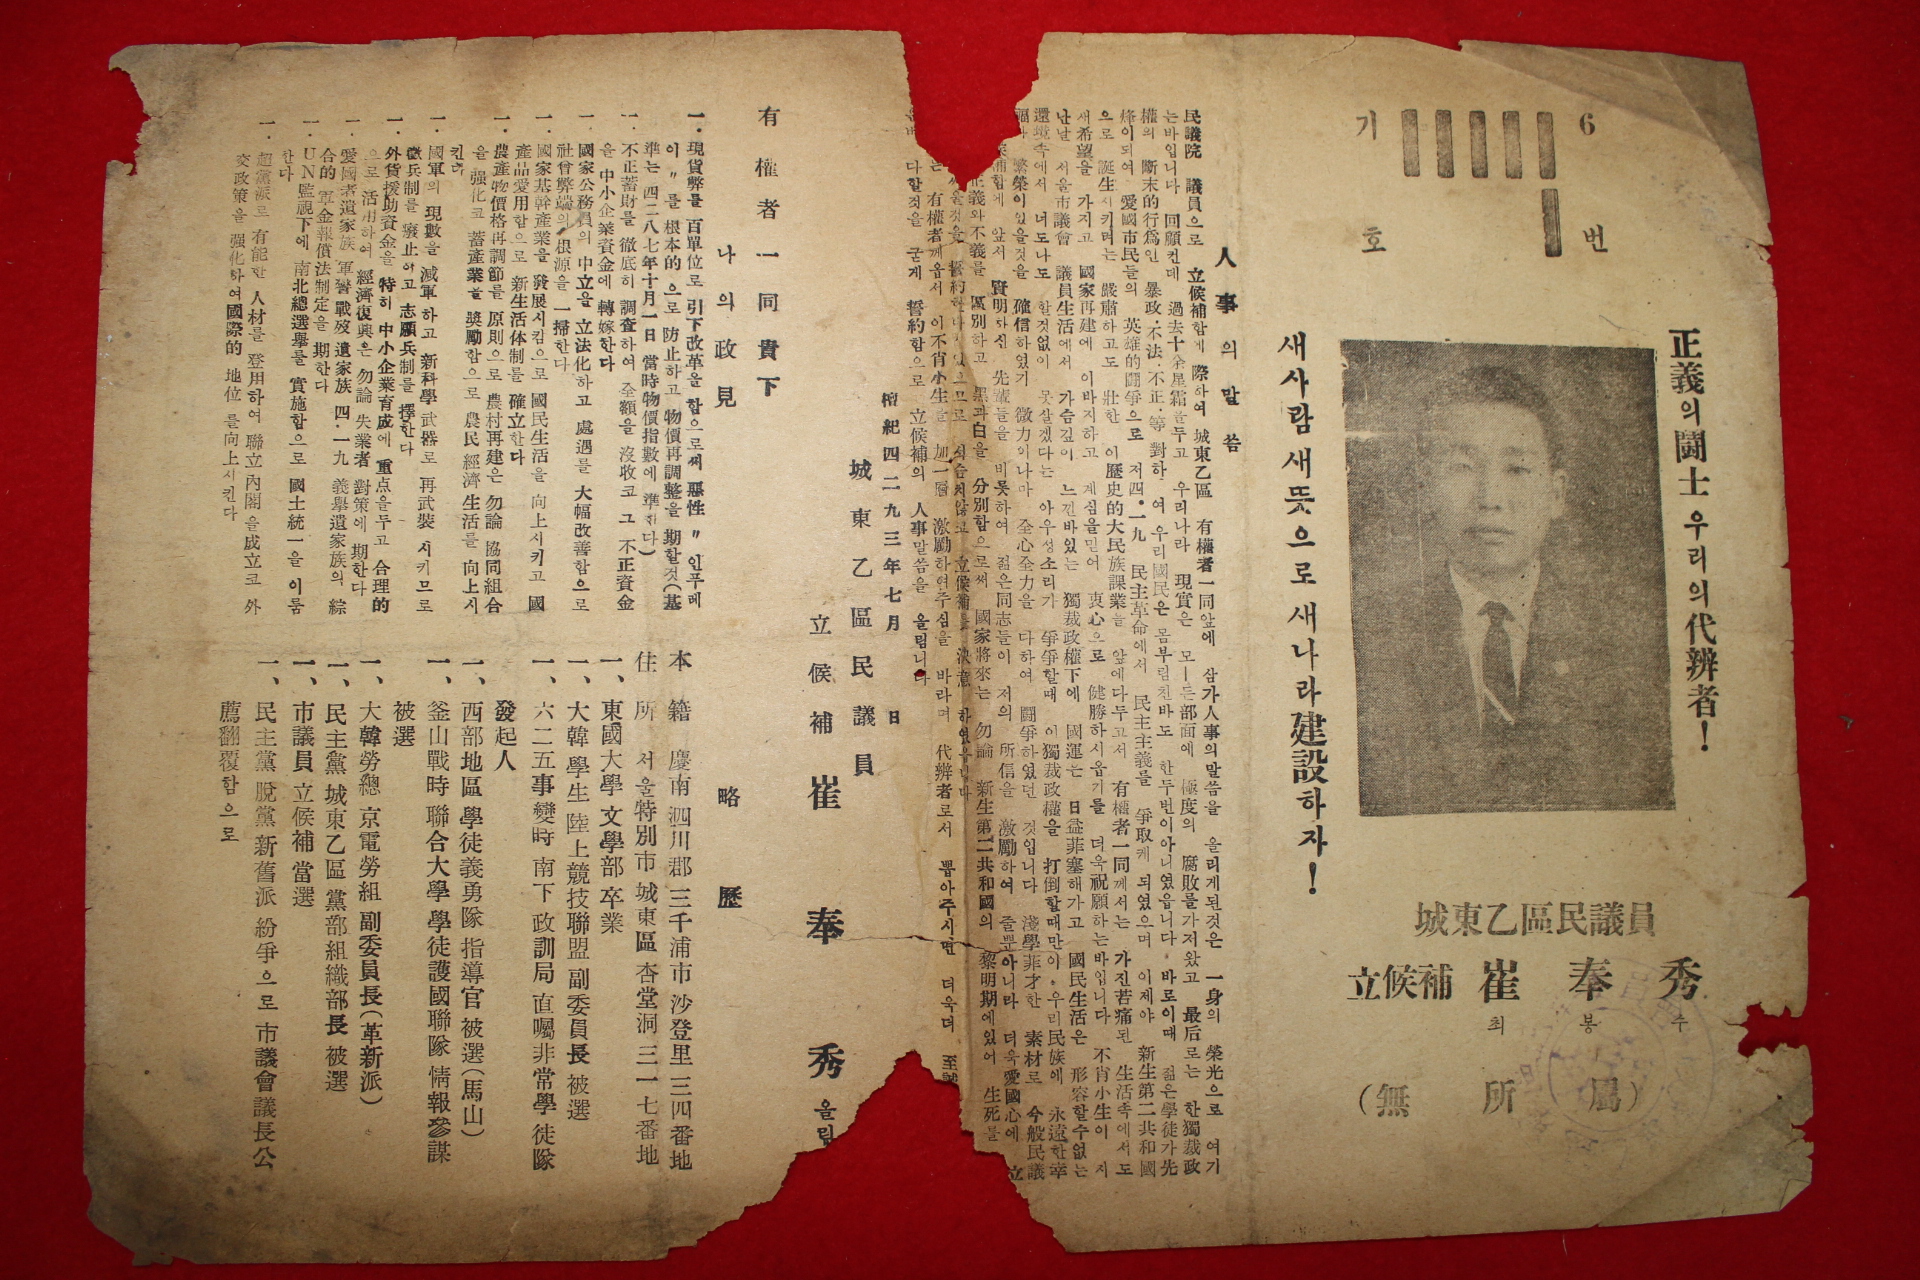 6번
기호
正義의 鬪士 우리의 代辨者!
새사람 새뜻으로 새나라 建設하자!
城東乙區民議員
立候補 崔奉秀
최봉수
(無所屬)
人事의 말씀
民議院 議員으로 立候補함에 際하여 城東乙區 有權者一同앞에 삼가人事의말씀을 올리게된것은 一身의 榮光으로 여기
는바입니다 回顧컨데 過去十余星霜을두고 우리나라 現實은 모ー든部面에 極度의 腐敗를가저왔고 最后로는 한獨裁政
權의 斷末的行爲인 暴政·不法·不正·等 對하여 우리國民은 몸부림친바도 한두번이아니였읍니다 바로이때 젊은學徒가先
烽이되여 愛國市民들의 英雄的鬪爭으로 저四·一九 民主革命에서 民主主義를 爭取케 되였으며 이제야 新生第二共和國
으로 誕生시키려는 嚴肅하고도 壯한 이歷史的大民族課業을 앞에다두고서 有權者一同께서는 가진苦痛된 生活속에서도
새希望을 가지고 國家再建에 이바지하고 계심을믿어 衷心으로 健勝하시옵기를 더욱祝願하는바입니다 不肖小生이 지
난날 서울市議會 議員生活에서 가슴깊이 느낀바있는 獨裁政權下에 國運은 日益菲塞해가고 國民生活은 形容할수없는
還境속에서 너도나도 할것없이 못살겠다는 아우성소리가 爭爭할때 이獨裁政權을 打倒할때만이 우리民族에 永遠한幸
福과 繁榮이있을것을 確信하였기 微力이나마 全心全力을 다하여 鬪爭하였던 것입니다 淺學非才한 素材로 今般民議
앞서 賢明하신 先輩들을 비롯하여 젊은同志들이 저의 所信을 激勵하여 줄뿐아니라 더욱愛國心에
正義와不義를 區別하고 黑과白을 分別함으로써 國家將來는 勿論 新生第二共和國의 黎明期에있어 生死를
立候補를 決意하였읍니다
有權者께옵서 이不肖小生을 加一層 激勵하여주심을 바라며 代辨者로서 뽑아주시면 더욱더 至誠
다할것을 굳게 誓約함으로 立候補의 人事말씀을 올립니다
檀紀四二九三年七月 日
城東乙區民議員
立候補 崔奉秀 올림
有權者一同貴下
나의 政見
一. 現貨弊를 百單位로 引下改革을 함으로써 惡性 〃인푸레
이〃를 根本的으로 防止하고 物價再調整을 期할것(基
準는 四二八七年十月一日 當時物價指數에 準한다)
一. 不正蓄財를 徹底히 調査하여 全額을 沒收코 그 不正資金
을 中小企業資金에 轉嫁한다
一. 國家公務員의 中立을 立法化하고 處遇를 大幅改善함으로
社會弊端의 根源을 一掃한다
一. 國家基幹產業을 發展시킴으로 國民生活을 向上시키고 國
產品愛用함으로 新生活体制를 確立한다
一. 農產物價格再調節를 原則으로 農村再建은 勿論 協同組合
을 强化코 蓄產業을 奬勵함으로 農民 經濟生活를 向上시
킨다
一. 國軍의 現數을 減軍하고 新科學武器로 再武裝 시키므로
徵兵制를 廢止하고 志願兵制를 擇한다
一. 外貨援助資金을 特히 中小企業育成에 重点을두고 合理的
으로 活用하여 經濟復興은 勿論 失業者 對策에 期한다
一. 愛國者遺家族 軍警 戰歿 遺家族 四·一九 義擧遺家族의 綜
合的 軍金報償法制定을 期한다
一. UN監視下에 南北總選擧를 實施함으로 國土統一을 이룸
한다
一. 超黨派로 有能한 人材를 登用하여 聯立內閣을成立코 外
交政策을 强化하여國際的 地位를向上시킨다
略歷
本籍 慶南 泗川郡 三千浦市 沙登里 三四番地
住所 서울特別市 城東區 杏堂洞 三一七番地
一、東國大學 文學部 卒業
一、大韓學生 陸上競技聯盟 副委員長 被選
一、六二五事變時 南下 政訓局 直屬非常學徒隊
發起人
一、西部地區 學徒義勇隊 指導官 被選(馬山)
一、釜山戰時 聯合大學 學徒護國聯隊 情報參謀
被選
一、大韓勞總 京電勞組 副委員長(革新派)
一、民主黨 城東乙區 黨部組織部長 被選
一、市議員 立候補 當選
一、民主黨 脫黨 新舊派 紛爭으로 市議會議長公
薦翻覆함으로